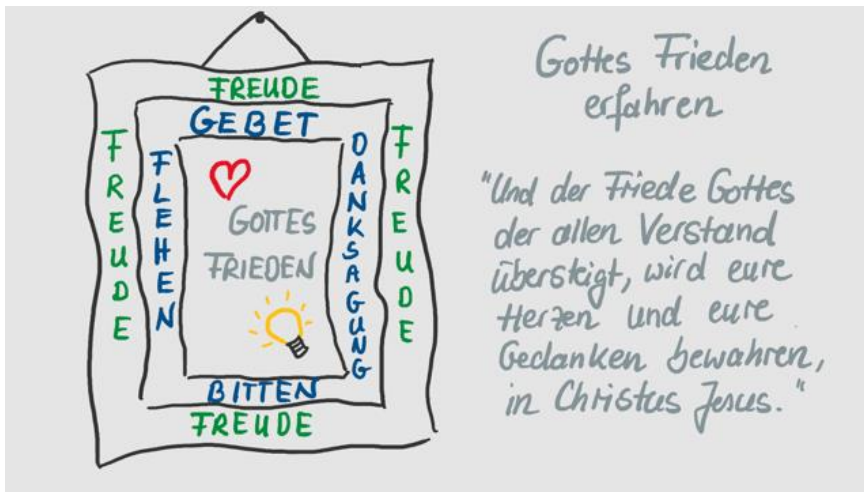 FREUDE
GEBET
FREUDE
FLEHEN
GOTTES
FRIEDEN
DANKSAGUNG
FREUDE
BITTEN
FREUDE
Gottes Frieden
erfahren
"Und der Friede Gottes
der allen Verstand
übersteigt, wird eure
Herzen und eure
Gedanken bewahren,
in Christus Jesus."